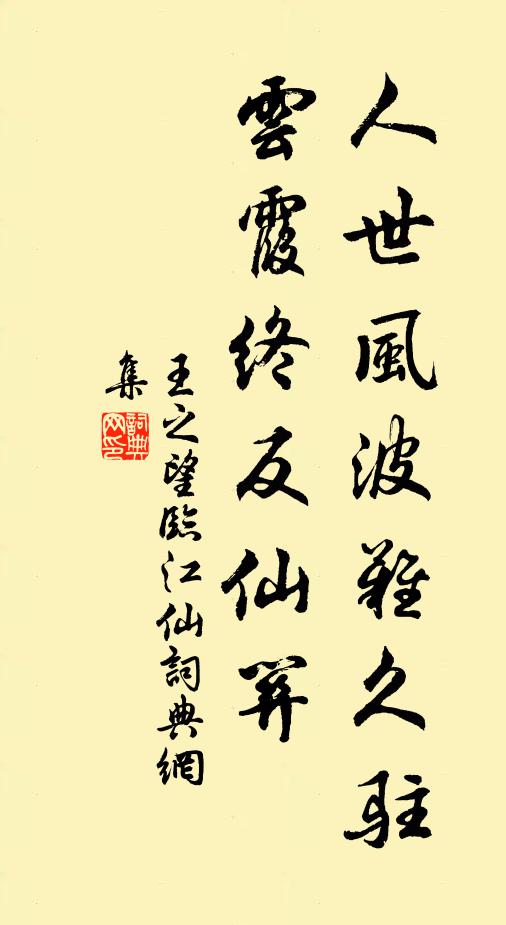 人世風波難久駐
雲霞終反仙關
王之望臨江仙詞典網
集
詞典
网印